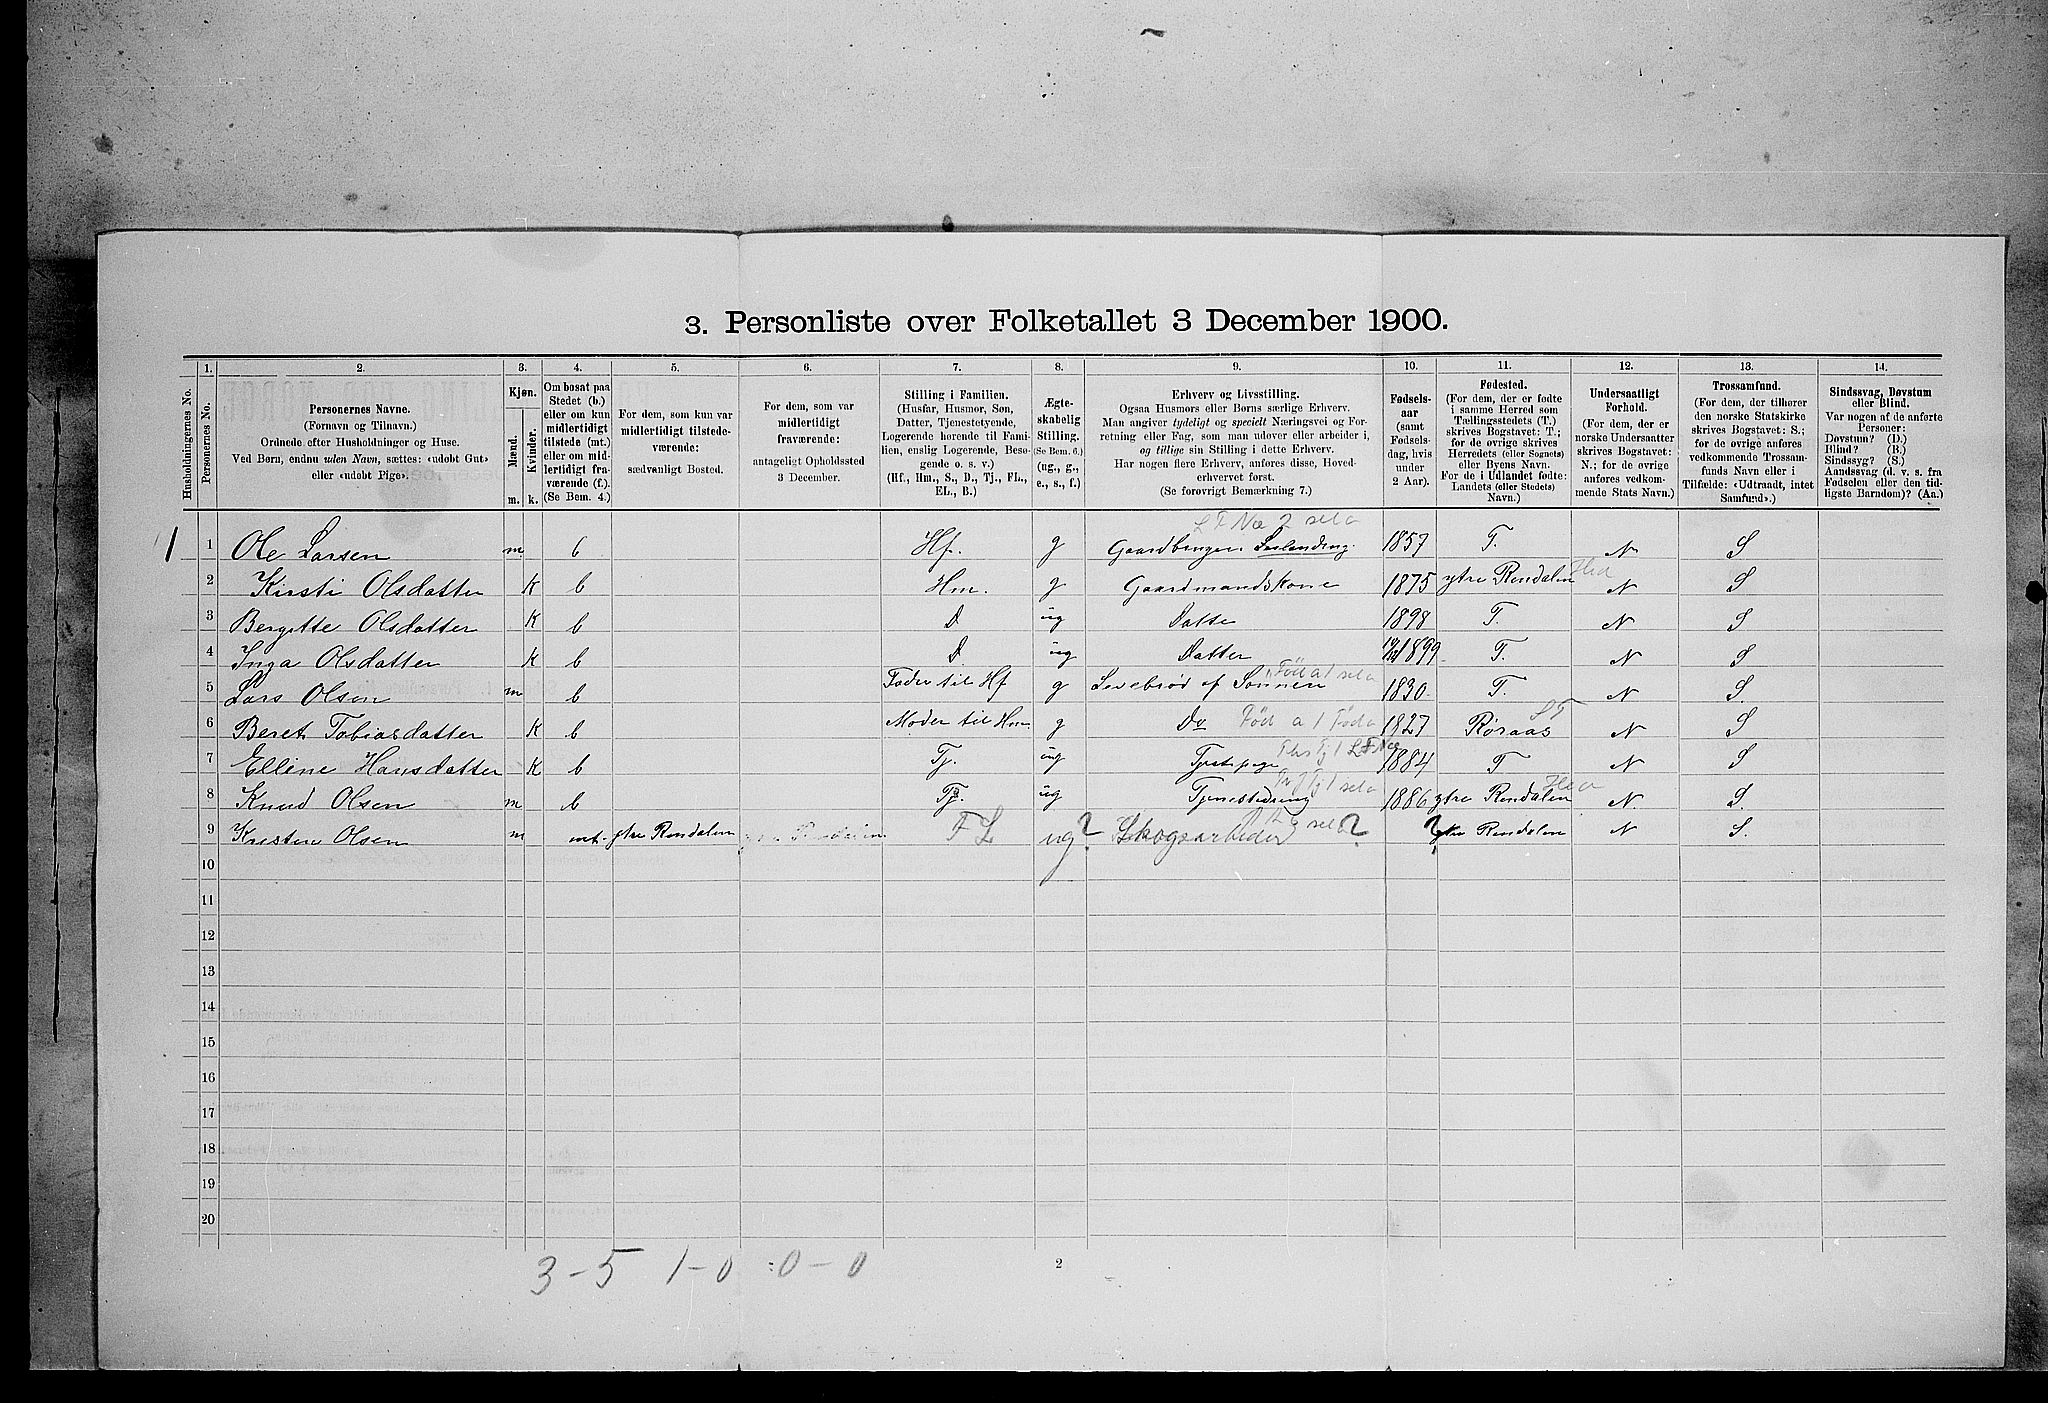 3. Personliste over Folketallet 3 December 1900.
1. 2. 3. 4. 5. 6. 7. 8. 9. 10. 11. 12. 13. 14.
Husholdningernes No.
Personernes No.
Personernes Navne.
(Fornavn og Tilnavn.)
Ordnede efter Husholdninger og Huse.
Ved Børn, endnu uden Navn, sættes: «udøbt Gut»
eller «udøbt Pige».
Kjøn.
Mænd. Kvinder.
m. k.
Om bosat paa
Stedet (b.)
eller om kun
midlertidigt
tilstede (mt.)
eller om mid-
lertidigt fra-
værende (f.).
(Se Bem. 4.)
For dem, som kun var
midlertidigt tilstede-
værende:
sædvanligt Bosted.
For dem, som var
midlertidigt
fraværende:
antageligt Opholdssted
3 December.
Stilling i Familien.
(Husfar, Husmor, Søn,
Datter, Tjenestetyende,
Logerende hørende til Fami-
lien, enslig Logerende, Besø-
gende o. s. v.)
(Hf., Hm., S., D., Tj., FL.,
EL., B.)
Ægte-
skabelig
Stilling.
(Se Bem. 6.)
(ug., g.,
e., s., f.)
Erhverv og Livsstilling.
Ogsaa Husmors eller Børns særlige Erhverv.
Man angiver tydeligt og specielt Næringsvei og For-
retning eller Fag, som man udøver eller arbeider i,
og tillige sin Stilling i dette Erhverv.
Har nogen flere Erhverv, anføres disse, Hoved-
erhvervet først.
(Se forøvrigt Bemærkning 7.)
Fødsels-
aar
(samt
Fødsels-
dag, hvis
under
2 Aar).
Fødested.
(For dem, der er fødte
i samme Herred som
Tællingsstedets (T.)
skrives Bogstavet: T.;
for de øvrige skrives
Herredets (eller Sognets)
eller Byens Navn.
For de i Udlandet fødte:
Landets (eller Stedets)
Navn.)
Undersaatligt
Forhold.
(For dem, der er
norske Undersaatter
skrives Bogstavet:
N.; for de øvrige
anføres vedkom-
mende Stats Navn.)
Trossamfund.
(For dem, der tilhører
den norske Statskirke
skrives Bogstavet: S.;
for de øvrige anføres
vedkommende Trossam-
funds Navn eller i
Tilfælde: «Udtraadt, intet
Samfund».)
Sindssvag, Døvstum
eller Blind.
Var nogen af de anførte
Personer:
Døvstum? (D.)
Blind? (B.)
Sindssyg? (S.)
Aandssvag (d. v. s. fra
Fødselen eller den tid-
ligste Barndom)? (Aa.)
1 1 Ole Larsen m b Hf. g Gaardbruger Selveiendmg. 1857 T. N S
2 Kirsti Olsdatter K b Hm. g Gaardmandskone 1875 ytre Rendalen Hed N S
3 Bergitte Olsdatter K b D ug Datter 1898 T. N S
4 Inga Olsdatter K b D. ug Datter 1899 T. N S
5 Lars Olsen m b Fader til Hf g Levebrød af Sønnen 1830 T. N S.
6 Beret Tobiasdatter K b Moder til Hm. g Do 1827 Røraas ST N S
7 Elline Hansdatter K b Tj. ug Tjenstepige 1884 T N S
8 Knud Olsen m b Tj. ug Tjenestedreng 1886 ytre Rendalen Hed N S.
9 Kristen Olsen m mt. ytre Rendalen ytre Rendalen FL ug? Skogsarbeder ? ? ytre Rendalen N S.
10
11
12
13
14
15
16
17
18
19
20
3-5 1-0 0-0
2